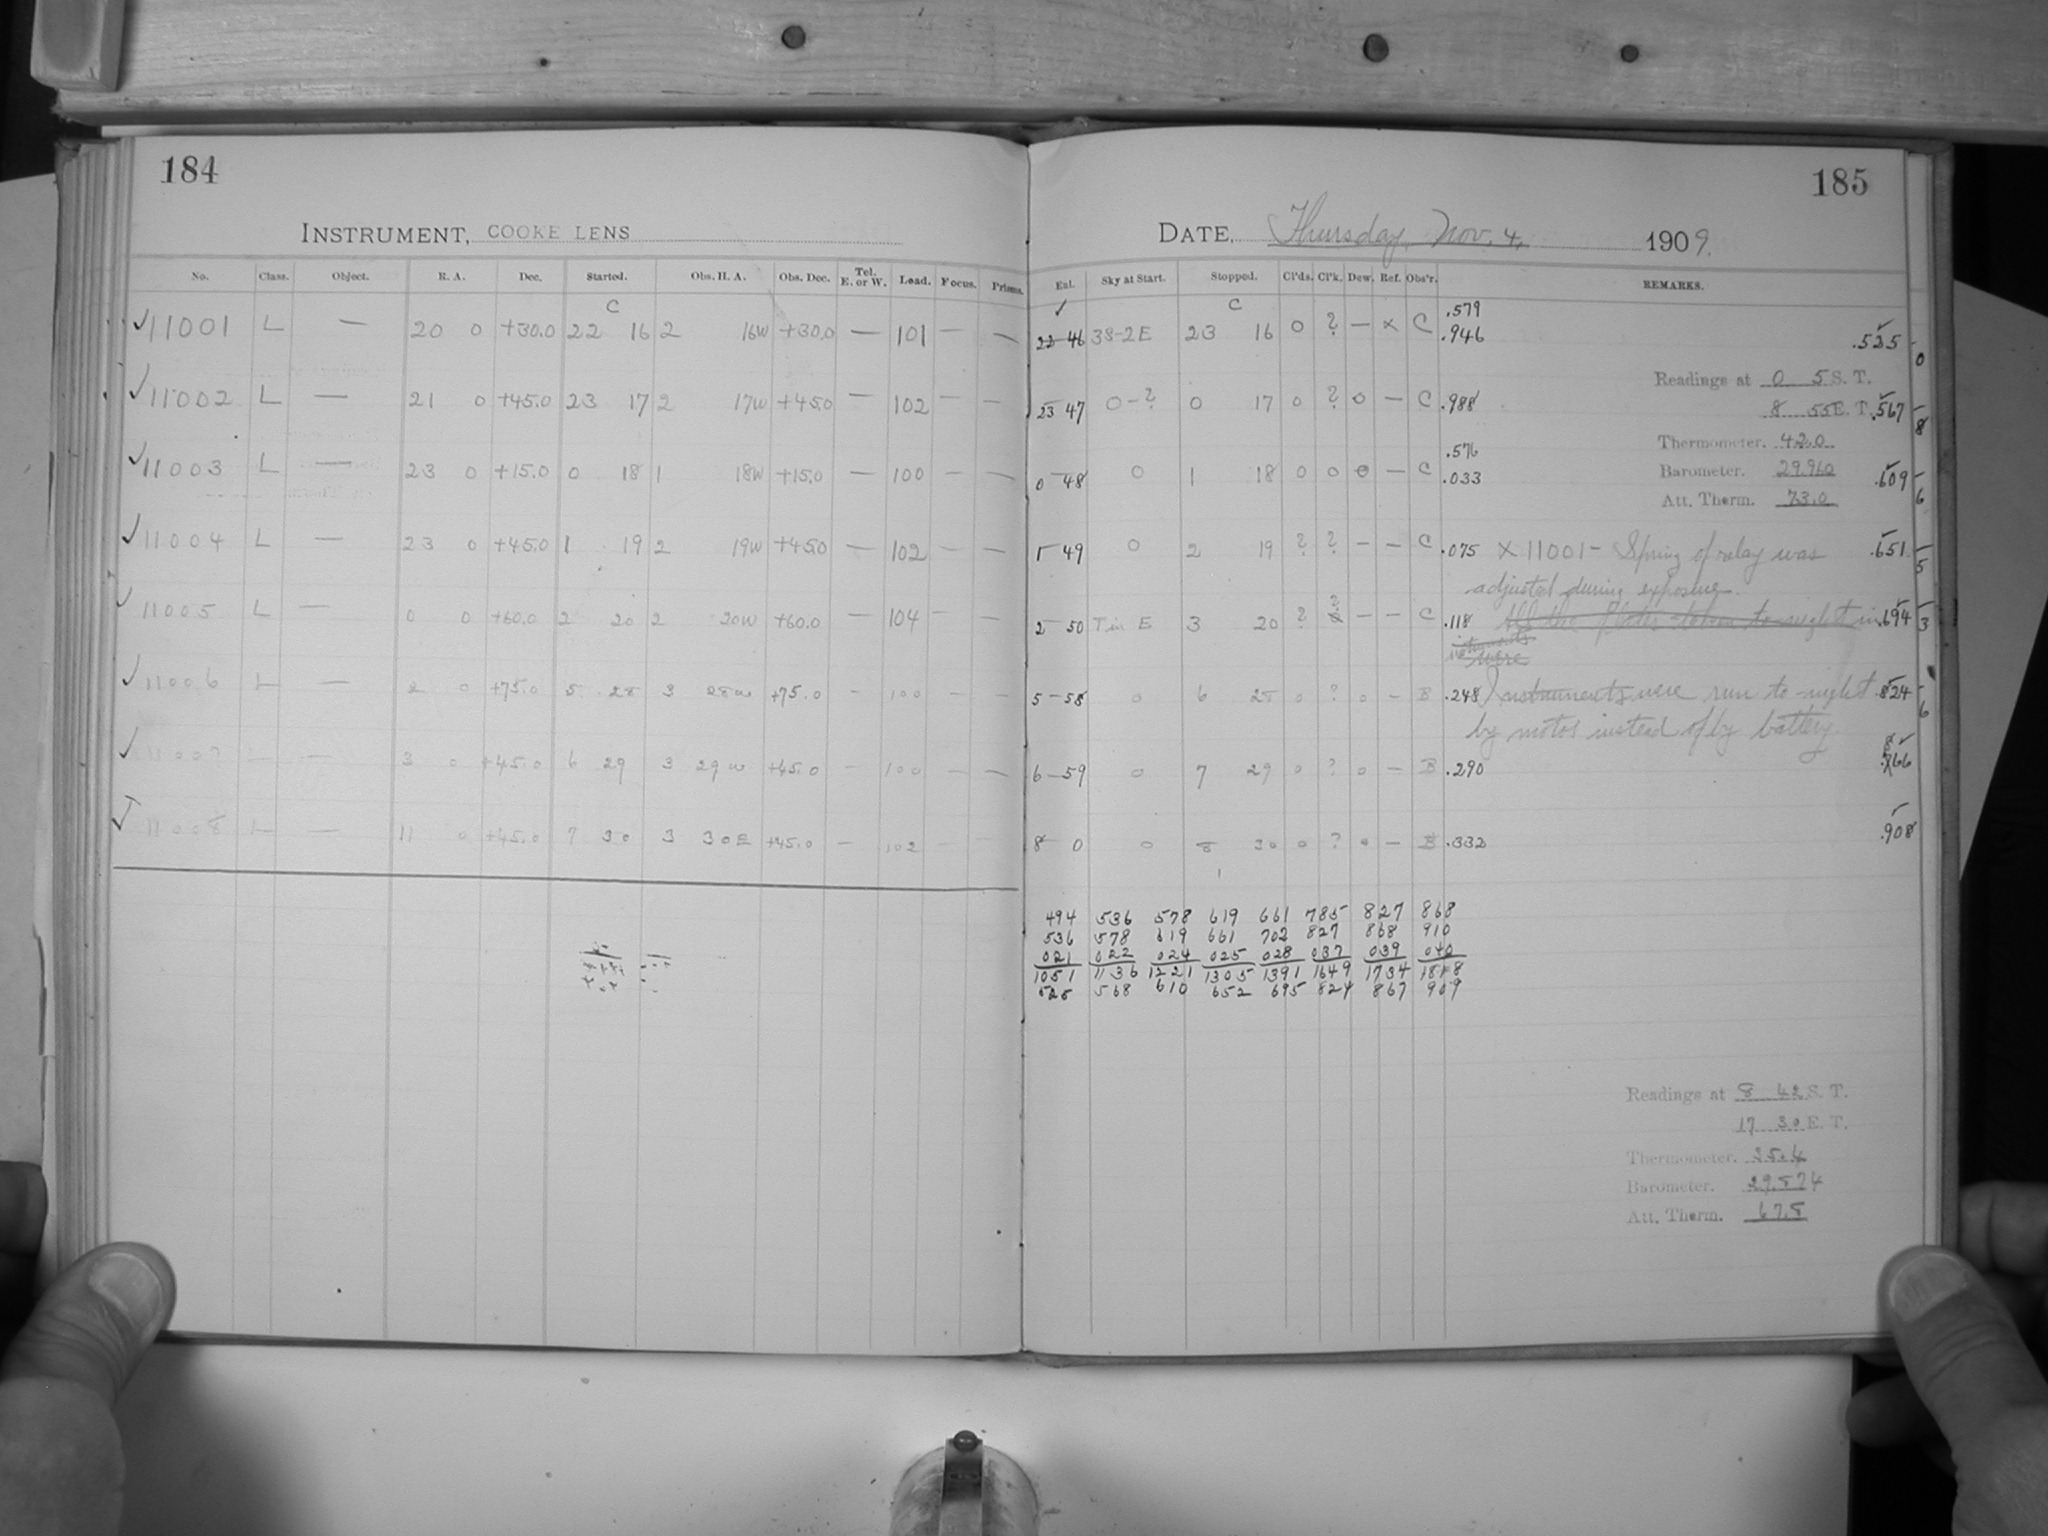 184
INSTRUMENT, COOKE LENS
No. Class. Object. R. A. Dec. Started. Obs. H. A. Obs. Dec. Tel. E. or W. Load. Focus. Prisms.
C
✓11001 L — 20 0 +30.0 22 16 2 16W +30.0 — 101 — —
✓11002 L — 21 0 +45.0 23 17 2 17W +45.0 — 102 — —
✓11003 L — 23 0 +15.0 0 18 1 18W +15.0 — 100 — —
✓11004 L — 23 0 +45.0 1 19 2 19W +45.0 — 102 — —
✓11005 L — 0 0 +60.0 2 20 2 20W +60.0 — 104 — —
✓11006 L — 2 0 +75.0 5 28 3 28W +75.0 — 100 — —
✓11007 L — 3 0 +45.0 6 29 3 29W +45.0 — 100 — —
✓11008 L — 11 0 +45.0 7 30 3 30E +45.0 — 102 — —
185
DATE, Thursday, Nov. 4, 1909.
Eal. Sky at Start. Stopped. Cl'ds. Cl'k. Dew. Ref. Obs'r. REMARKS.
✓ C .579
22-46 38-2E 23 16 0 ? — x C .946 .525
Readings at 0 5 S. T.
23 47 0-? 0 17 0 ? 0 — C .988 8 55 E. T. .567
.576 Thermometer. 42.0
0-48 0 1 18 0 0 0 — C .033 Barometer. 29.960 .609
Att. Therm. 73.0
1-49 0 2 19 ? ? — — C .075 X 11001 - Spring of relay was .651
adjusted during exposure.
2-50 T in E 3 20 ? ? — — C .118 All the plates taken to-night in .694
instruments
were
5-58 0 6 28 0 ? 0 — B .248 Instruments were run to-night .824
by motor instead of by battery.
6-59 0 7 29 0 ? 0 — B .290 .866
8 0 0 8 30 0 ? 0 — B .332 .908
494 536 578 619 661 785 827 868
536 578 619 661 702 827 868 910
021 022 024 025 028 037 039 040
1051 1136 1221 1305 1391 1649 1734 1818
525 568 610 652 695 824 867 909
Readings at 8 42 S. T.
17 30 E. T.
Thermometer. 35.4
Barometer. 29.874
Att. Therm. 67.8